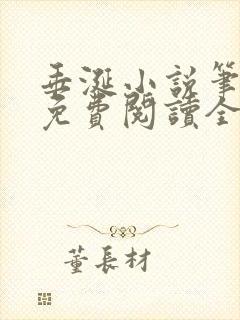 垂涎小說筆
免費閱讀全
董長材